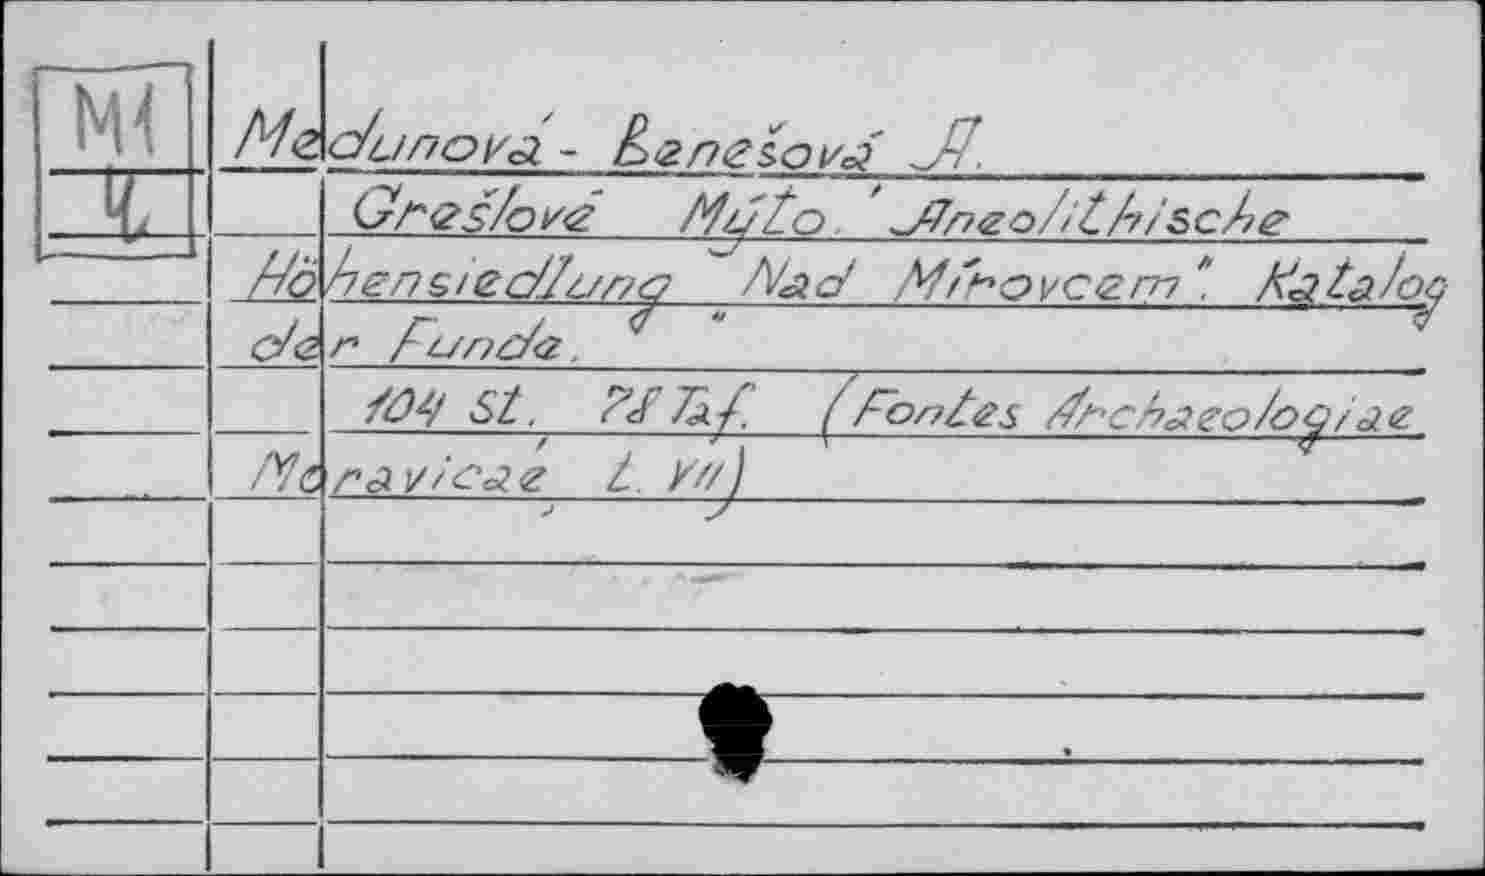 M1
4
Medunová - Benešová A.
Grešlové Mýto. Äneolithische
Höhensiedlung "Nad Mírovcem". Katalog
der Funde.
104 St. 78 Taf. (Fontes Archaeologiae
Moravicae t. VII)